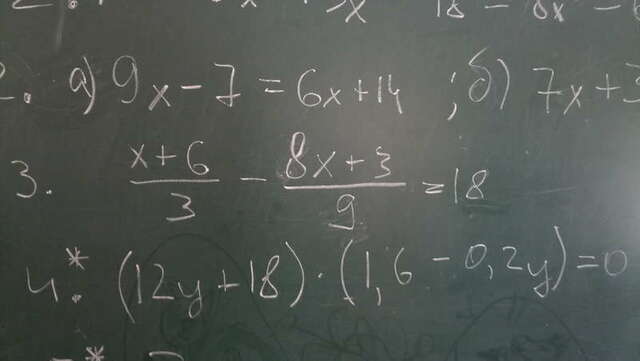 18 - 8x -
2. а) 9x - 7 = 6x + 14 ; б) 7x + 3
3. (x + 6)/3 - (8x + 3)/9 = 18
4.* (12y + 18) · (1,6 - 0,2y) = 0